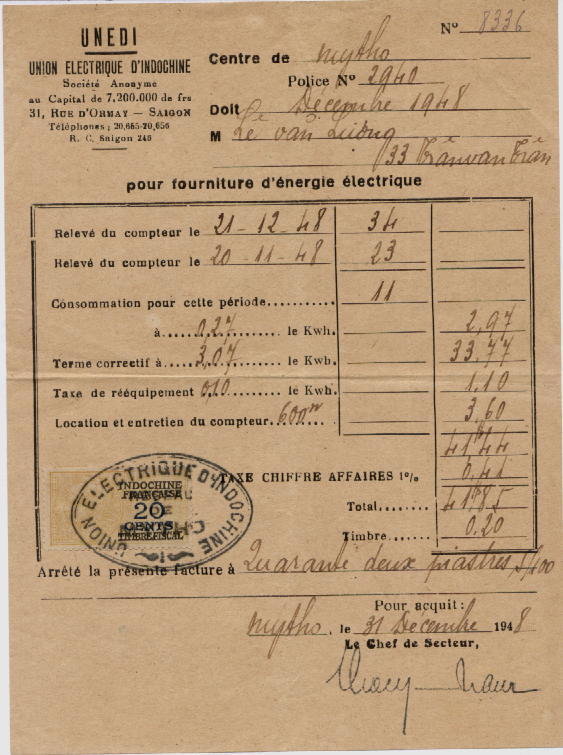 UNEDI
UNION ELECTRIQUE D'INDOCHINE
Société Anonyme
au Capital de 7,200.000 de frs
31, RUE D'ORMAY — SAIGON
Téléphones : 20,655-20,656
R. C. Saigon 246
N° 8336
Centre de Mytho
Police N° 2940
Doit Décembre 1948
M Lê van Lương
133 Trânvan Trân
pour fourniture d'énergie électrique
Relevé du compteur le 21-12-48 34
Relevé du compteur le 20-11-48 23
Consommation pour cette période........... 11
à......0,27......... le Kwh. 2,97
Terme correctif à....3,07...... le Kwh. 33,77
Taxe de rééquipement 0,10 le Kwh. 1,10
Location et entretien du compteur. 600w 3,60
41,44
TAXE CHIFFRE AFFAIRES 1% 0,41
Total....... 41,85
Timbre...... 0,20
UNION ELECTRIQUE D'INDOCHINE
INDOCHINE
FRANÇAISE
20
CENTS
TIMBRE FISCAL
Arrêté la présente facture à Quarante deux piastres, 5/100
Pour acquit :
Mytho, le 31 Décembre 1948
Le Chef de Secteur,